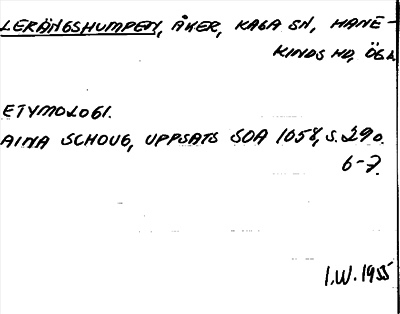 LERÄNGSHUMPEN, ÅKER, KAGA SN, HANE-
KINDS HD, ÖGL
ETYMOLOGI.
AINA SCHOUG, UPPSATS SOA 1058, S. 290.
6-7.
I.W. 1955